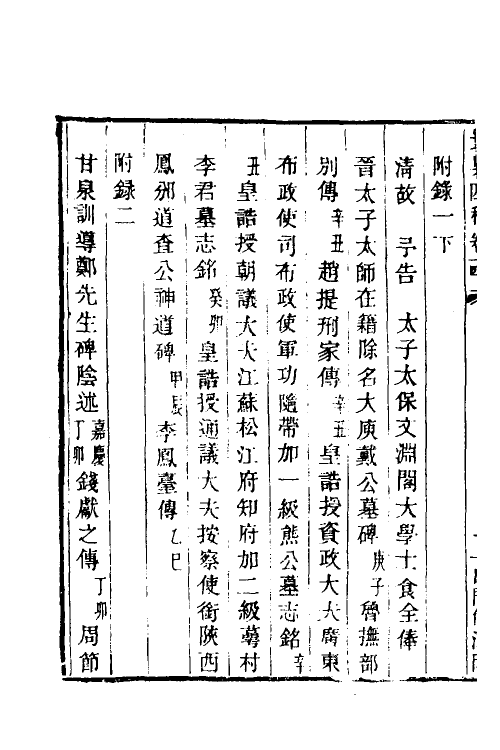 附錄一下
清故　予告　太子太保文淵閣大學士食全俸
晉太子太師在籍除名大庾戴公墓碑庚子魯撫部
別傳辛丑趙提刑家傳辛丑皇誥授資政大夫廣東
布政使司布政使軍功隨帶加一級熊公墓志銘辛
丑皇誥授朝議大夫江蘇松江府知府加二級蓴村
李君墓志銘癸卯皇誥授通議大夫按察使銜陝西
鳳邠道查公神道碑甲辰李鳳臺傳乙巳
附錄二
甘泉訓導鄭先生碑陰述嘉慶丁卯錢獻之傳丁卯周節